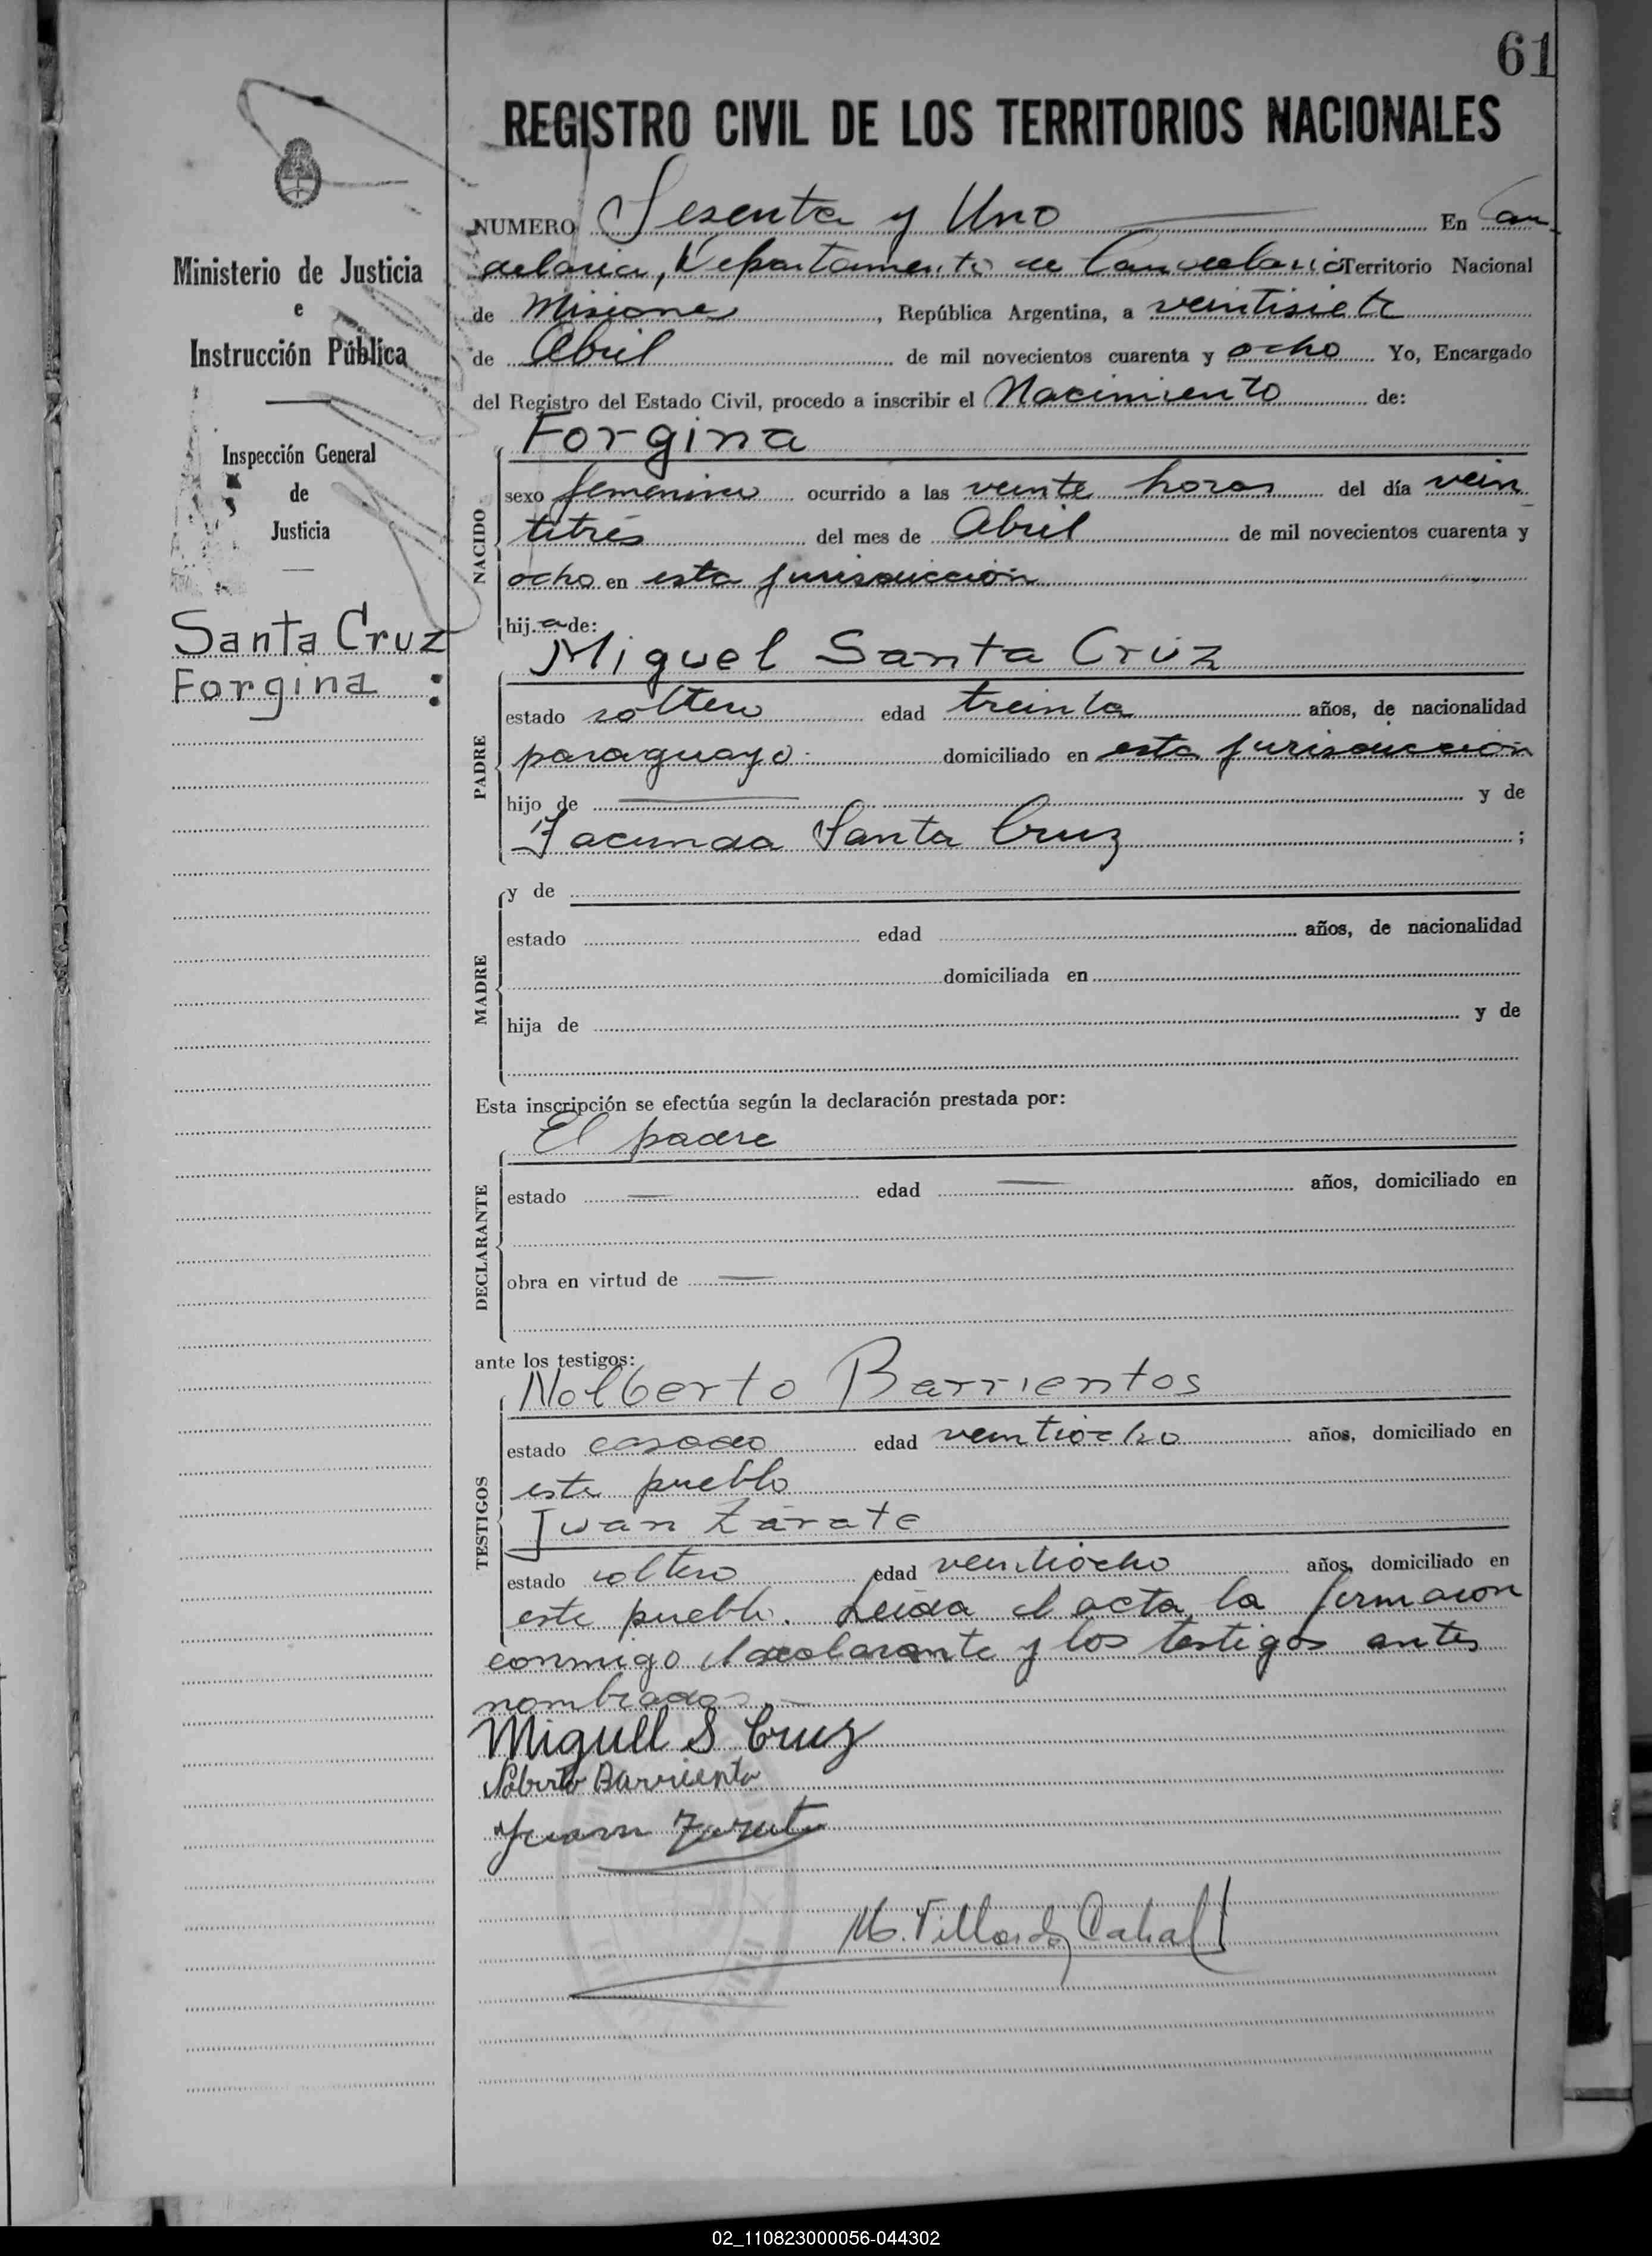 61
REGISTRO CIVIL DE LOS TERRITORIOS NACIONALES
Ministerio de Justicia
e
Instrucción Pública
Inspección General
de
Justicia
Santa Cruz
Forgina :
NUMERO Sesenta y Uno En Can
delaria, Departamento de Candelaria Territorio Nacional
de Misiones, República Argentina, a veintisiete
de Abril de mil novecientos cuarenta y ocho Yo, Encargado
del Registro del Estado Civil, procedo a inscribir el Nacimiento de:
Forgina
NACIDO
sexo femenino ocurrido a las veinte horas del día vein
titrés del mes de Abril de mil novecientos cuarenta y
ocho en esta jurisdicción
hij a de:
Miguel Santa Cruz
PADRE
estado soltero edad treinta años, de nacionalidad
paraguayo domiciliado en esta jurisdicción
hijo de — y de
Facunda Santa Cruz ;
MADRE
y de
estado edad años, de nacionalidad
domiciliada en
hija de y de
Esta inscripción se efectúa según la declaración prestada por:
El padre
DECLARANTE
estado — edad — años, domiciliado en
obra en virtud de —
ante los testigos:
Nolberto Barrientos
TESTIGOS
estado casado edad veintiocho años, domiciliado en
este pueblo
Juan Zárate
estado soltero edad veintiocho años, domiciliado en
este pueblo. Leída el acta, la firmaron
conmigo el declarante y los testigos antes
nombrados.—
Miguell S Cruz
Nolberto Barriento
Juan Zarate
02_110823000056-044302